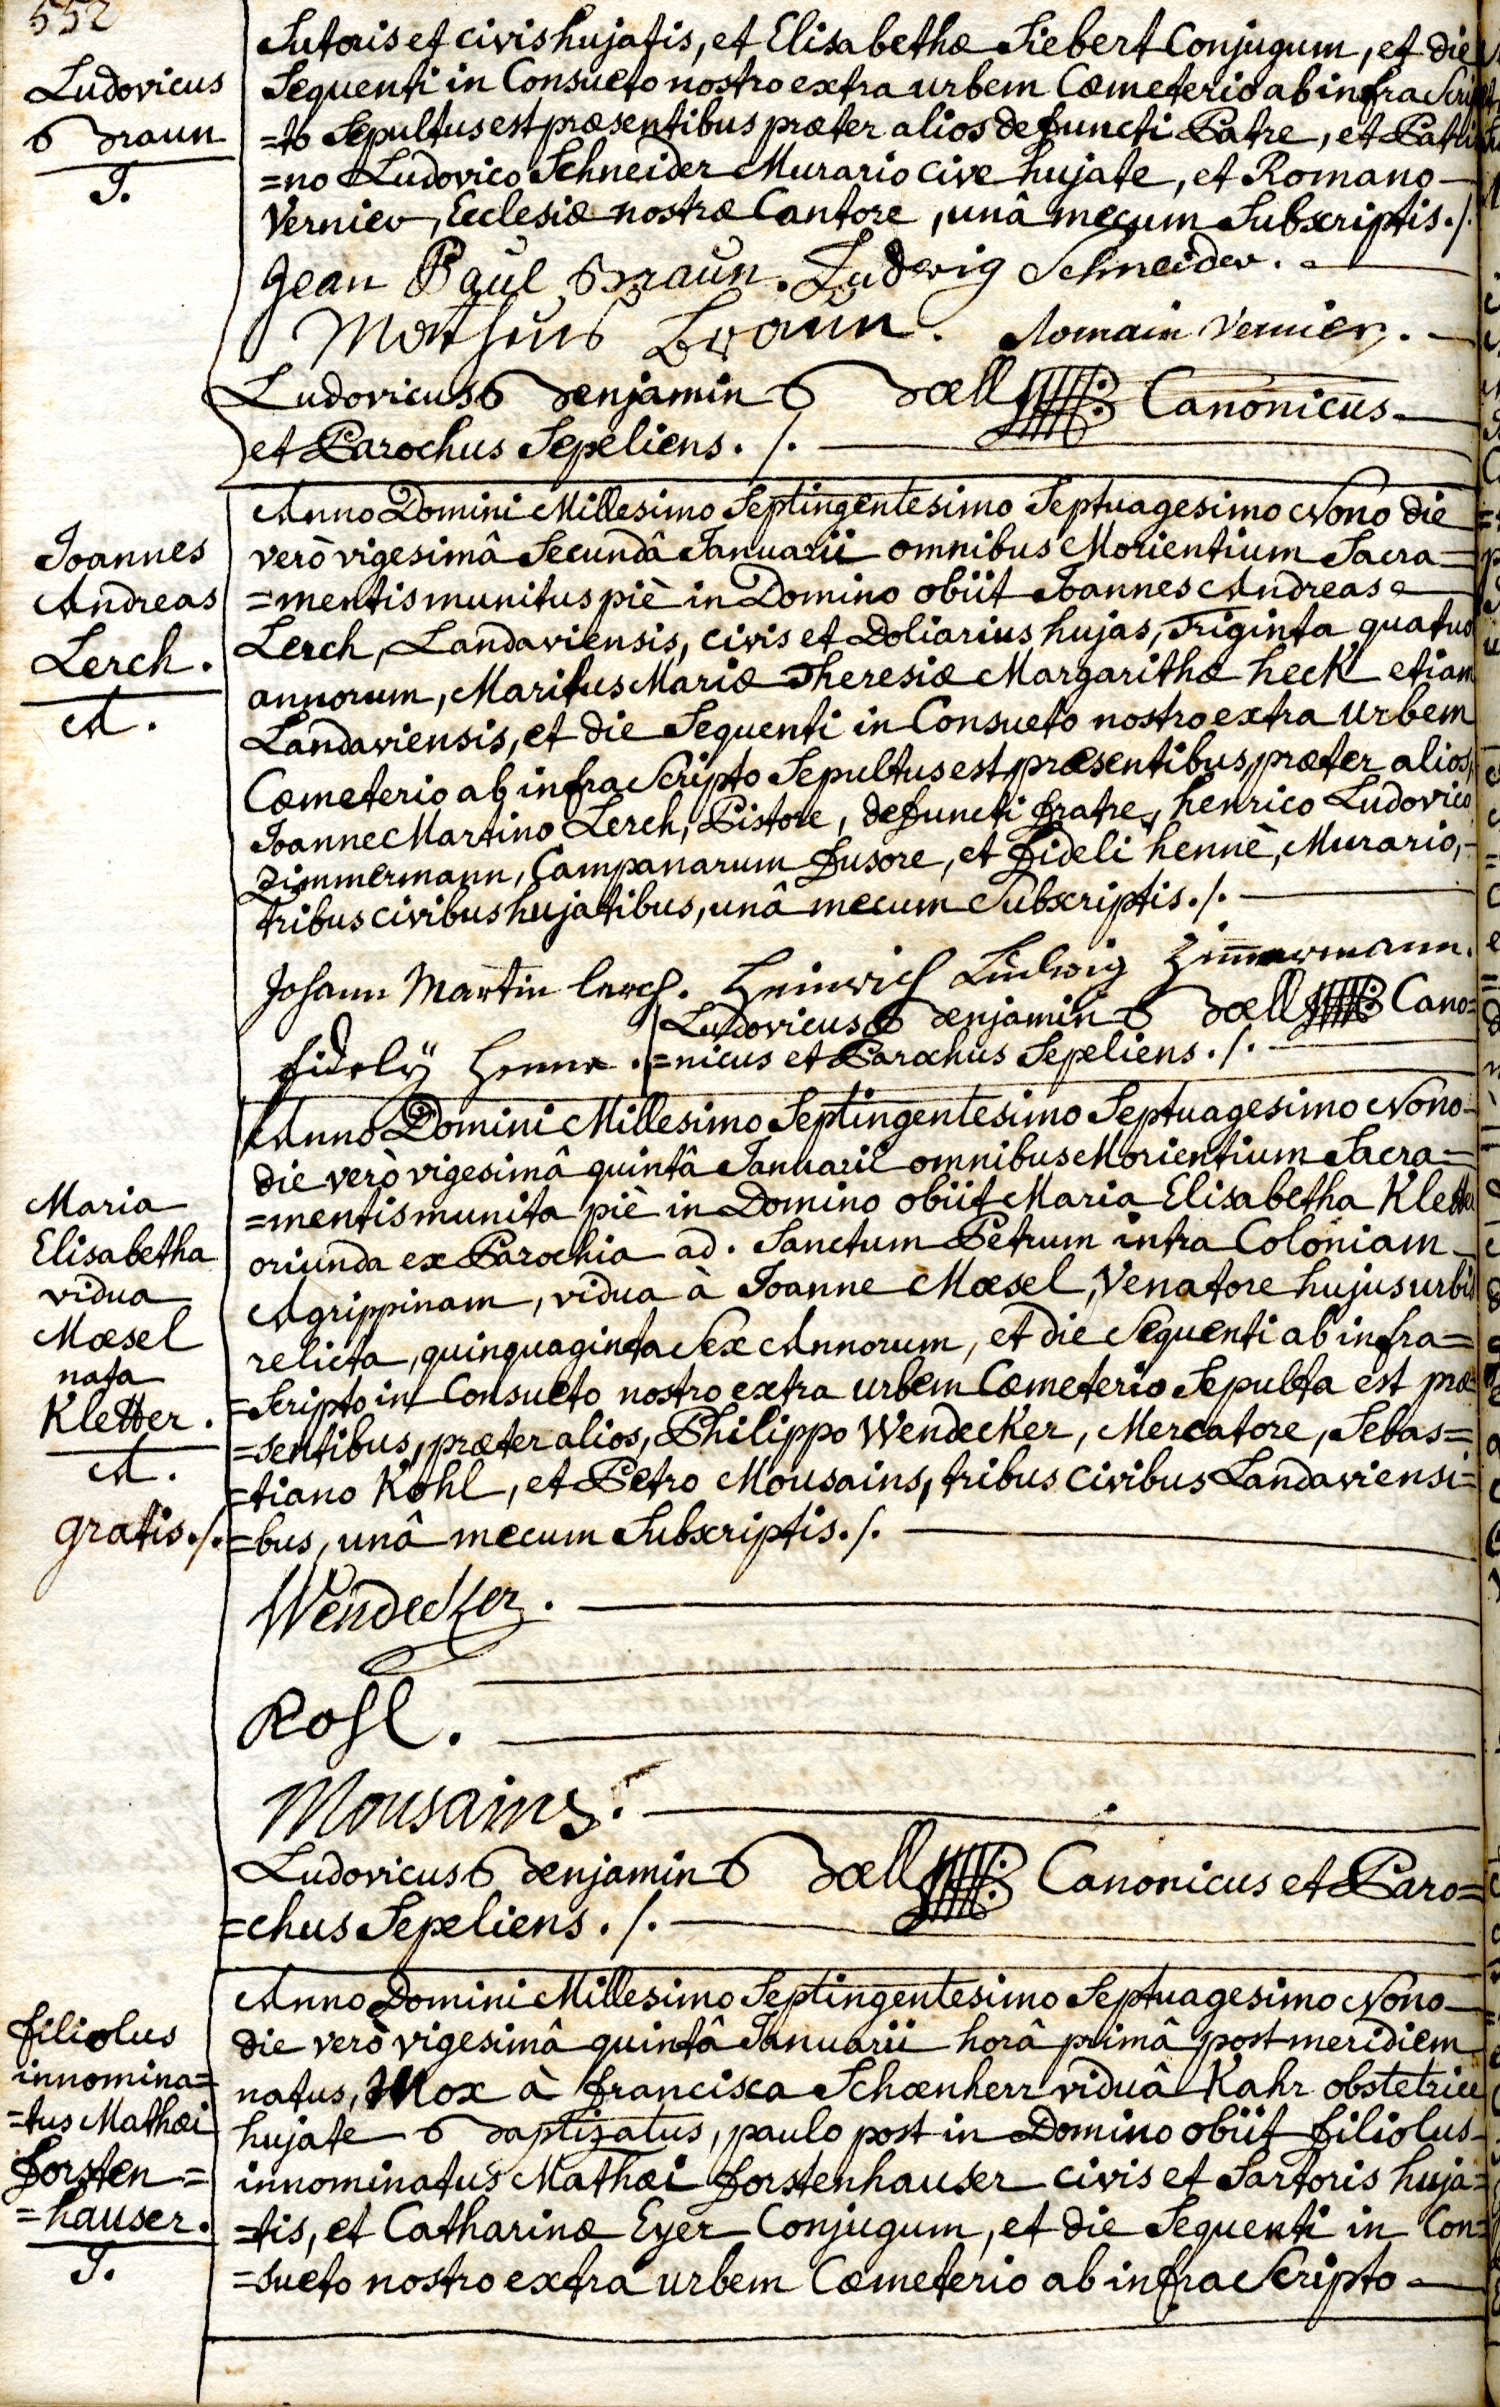 552
Ludovicus
Braun
J.
Sutoris et civis hujatis, et Elisabethæ Siebert Conjugum, et die
Sequenti in Consueto nostro extra urbem Cœmeterio ab infra Scrip
=to Sepultus est præsentibus præter alios defuncti Patre, et Patri
=no Ludovico Schneider Murario cive hujate, et Romano
Vernier, Ecclesiæ nostræ Cantore, unâ mecum Subscriptis./.
Jean Paul Braun. Ludwig Schneider.
Matheus Braun. Romain Vernier.
Ludovicus Benjamin Bœll Canonicus
et Parochus Sepeliens./.
Joannes
Andreas
Lerch.
A.
Anno Domini Millesimo Septingentesimo Septuagesimo Nono die
verò vigesimâ Secundâ Januarii omnibus Morientium Sacra=
=mentis munitus piè in Domino obiit Joannes Andreas
Lerch, Landaviensis, civis et Doliarius hujas, Triginta quatuo
annorum, Maritus Mariæ Theresiæ Margarithæ heck etiam
Landaviensis, et die Sequenti in Consueto nostro extra Urbem
Cœmeterio ab infra Scripto Sepultus est præsentibus, præter alios,
Joanne Martino Lerch, Pistore, defuncti fratre, henrico Ludovico
Zimmermann, Campanarum fusore, et fideli hennè, Murario,
tribus civibus hujatibus, unâ mecum Subscriptis./.
Johann Martin Lerch. Heinrich Ludwig Zimmermann.
Ludovicus Benjamin Bœll Cano=
fidely Henne. =nicus et Parochus Sepeliens./.
Maria
Elisabetha
vidua
Mœsel
nata
Kletter.
A.
gratis./.
Anno Domini Millesimo Septingentesimo Septuagesimo Nono
die verò vigesimâ quintâ Januarii omnibus Morientium Sacra=
=mentis munita piè in Domino obiit Maria Elisabetha Kletter
oriunda ex Parochia ad. Sanctum Petrum intra Coloniam
Agrippinam, vidua à Joanne Mœsel, Venatore hujus urbis
relicta, quinquaginta Sex Annorum, et die Sequenti ab infra=
=Scripto in Consueto nostro extra urbem Cœmeterio Sepulta est præ
=sentibus, præter alios, Philippo Wendecker, Mercatore, Sebas=
=tiano Kohl, et Petro Mousains, tribus civibus Landaviensi=
=bus, unâ mecum Subscriptis./.
Wendecker.
Kohl.
Mousains.
Ludovicus Benjamin Bœll Canonicus et Paro=
=chus Sepeliens./.
filiolus
innomina=
=tus Mathæi
forsten=
=hauser.
J.
Anno Domini Millesimo Septingentesimo Septuagesimo Nono
die verò vigesimâ quintâ Januarii horâ primâ post meridiem
natus, Mox à francisca Schœnherr viduâ Kahr obstetrice
hujate Baptizatus, paulo post in Domino obiit filiolus
innominatus Mathæi forstenhauser civis et Sartoris huja=
=tis, et Catharinæ Eyer Conjugum, et die Sequenti in Con=
=sueto nostro extra urbem Cœmeterio ab infra Scripto